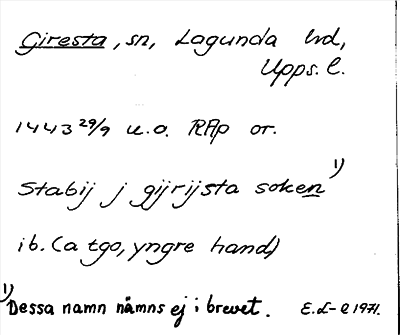 Giresta, sn, Lagunda hd,
Upps. l.
1443 29/9 u.o. RAp or.
Stabij j gijrijsta soken 1)
ib. (a tgo, yngre hand)
1) Dessa namn nämns ej i brevet. E.L-l 1971.